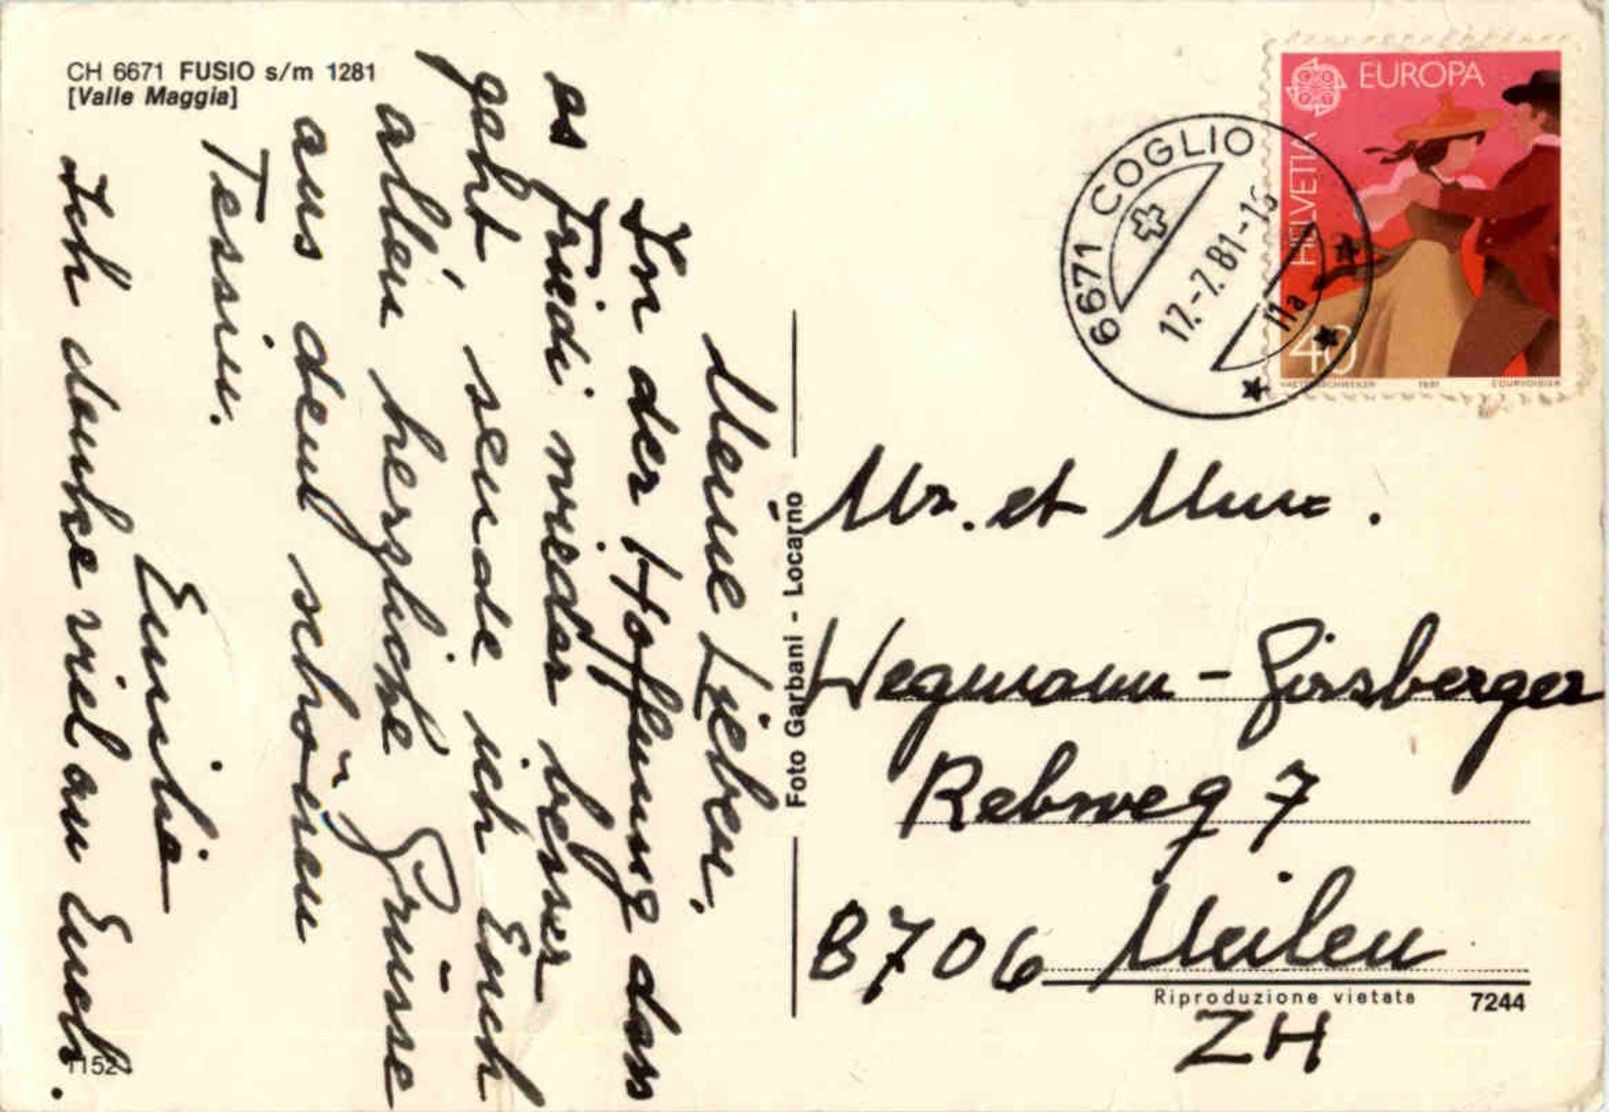 CH 6671 FUSIO s/m 1281
[Valle Maggia]
Meine Lieben.
In der Hoffnung dass
es Friedi wieder besser
geht, sende ich Euch
allen herzliche Grüsse
aus dem schönen
Tessin.
Emilie
Ich denke viel an Euch.
1152
Foto Garbani - Locarno
6671 COGLIO
17.-7.81-16
11a
EUROPA
HELVETIA
40
1981
Mr. et Mme.
Wegmann-Girsberger
Rebweg 7
8706 Meilen
ZH
Riproduzione vietata
7244